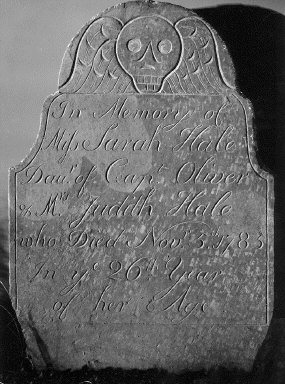 In Memory of
Miſs Sarah Hale
Dau.r of Cap.t Oliver
& M.rs Judith Hale
who Died Nov.r 3.d 1785
In y.e 26.th Year
of her Age